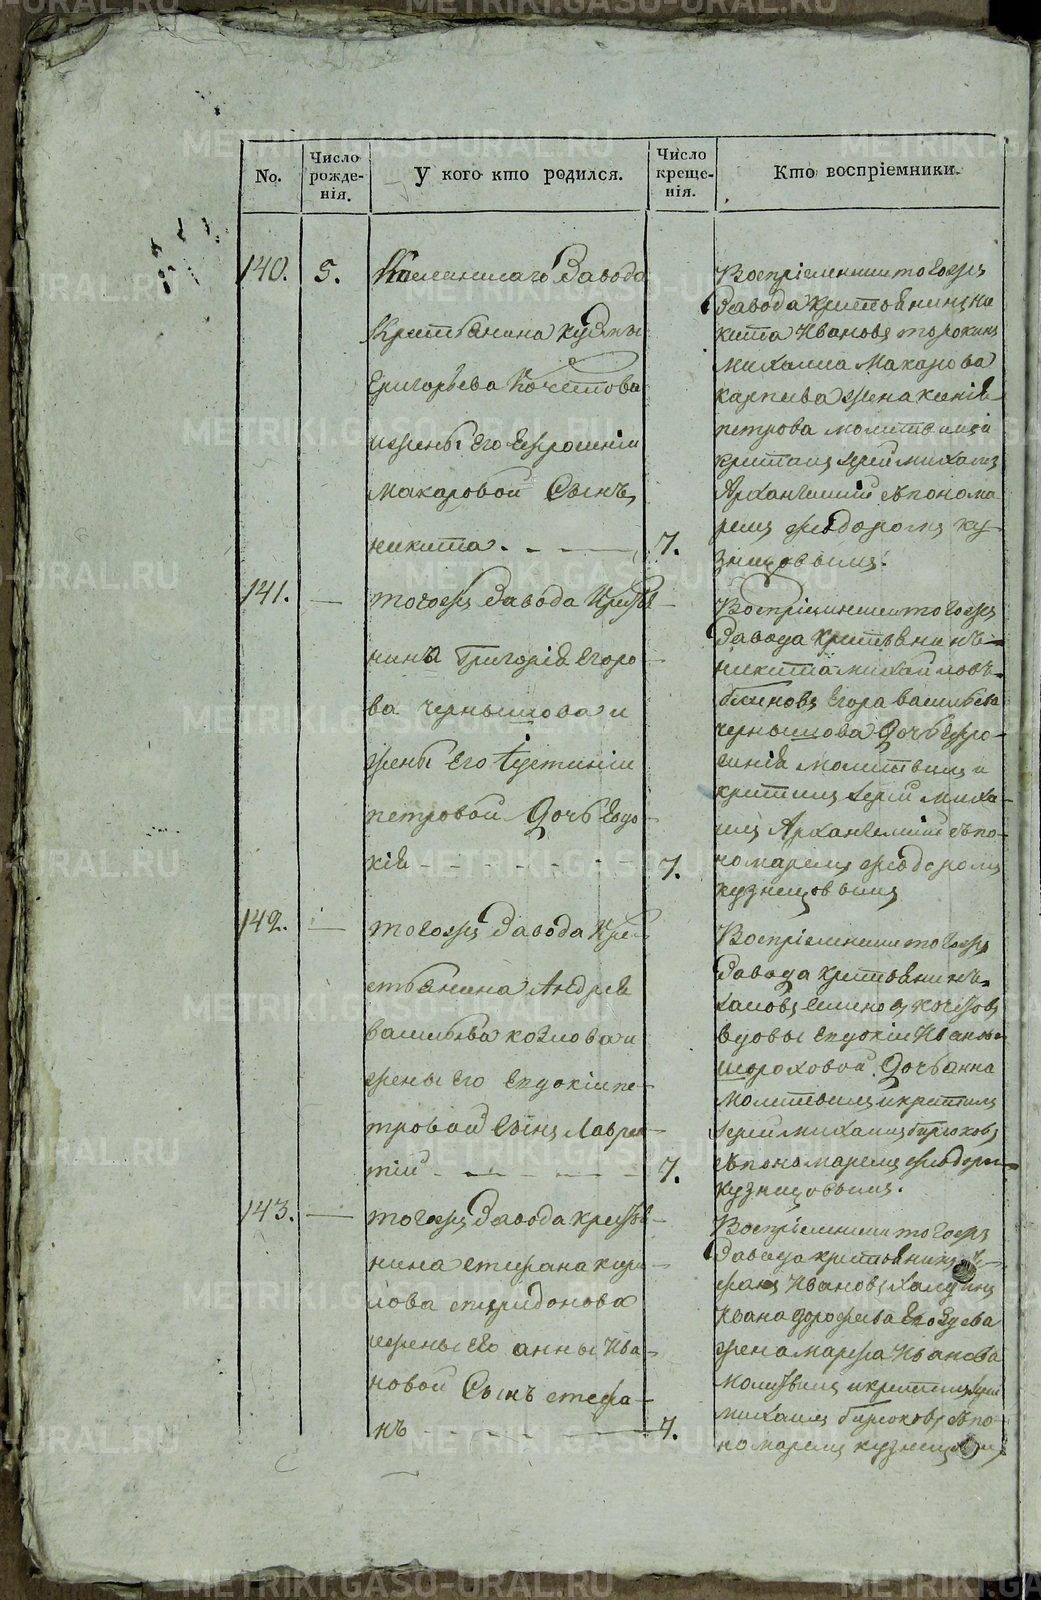 No.
Число рожденія.
У кого кто родился.
Число крещенія.
Кто воспріемники.
140.
5.
Каменскаго Завода
Крестьянина Кузмы
Григорьева Кочетова
и жены Его Ефросиніи
Макаровой Сынъ
никита.
7.
Воспріемники тогожъ
Завода Крестьянинъ Ни
кита Ивановъ
михаила Макарова
жена
петрова молитвилъ и
крестилъ Іерей михаилъ
Архангелскій съ понома
ремъ Феодоромъ Ку
знецовымъ.
141.
тогожъ Завода Крестья
нина Григорія Егоро
ва чернышова и
жены Его Іустиніи
петровой Дочь Евдо
кія
7.
Воспріемники тогожъ
Завода Крестьянинъ
никита михайловъ
блиновъ Егора васильева
чернышова Дочь Ефро
синія молитвилъ и
крестилъ Іерей миха
илъ Архангелскій съ по
номаремъ Феодоромъ
кузнецовымъ
142.
тогожъ Завода Кре
стьянина Андрея
васильева козлова и
жены Его Евдокіи пе
тровой Сынъ Лаврен
тій
7.
Воспріемники тогожъ
Завода Крестьянинъ
вдовы Евдокіи Иванов
шороховой Дочь анна
молитвилъ и крестилъ
Іерей михаилъ бирюковъ
съ пономаремъ Феодором
кузнецовымъ.
143.
тогожъ Завода крестья
нина стефана кири
лова спиридонова
и жены Его анны Ива
новой Сынъ стефа
нъ
7.
Воспріемники тогожъ
Завода крестьянинъ
Ивановъ
Ивана дорофеева
жена марфа Иванова
молитвилъ и крестилъ Іерей
михаилъ бирюковъ съ по
номаремъ кузнецовымъ
METRIKI.GASO-URAL.RU